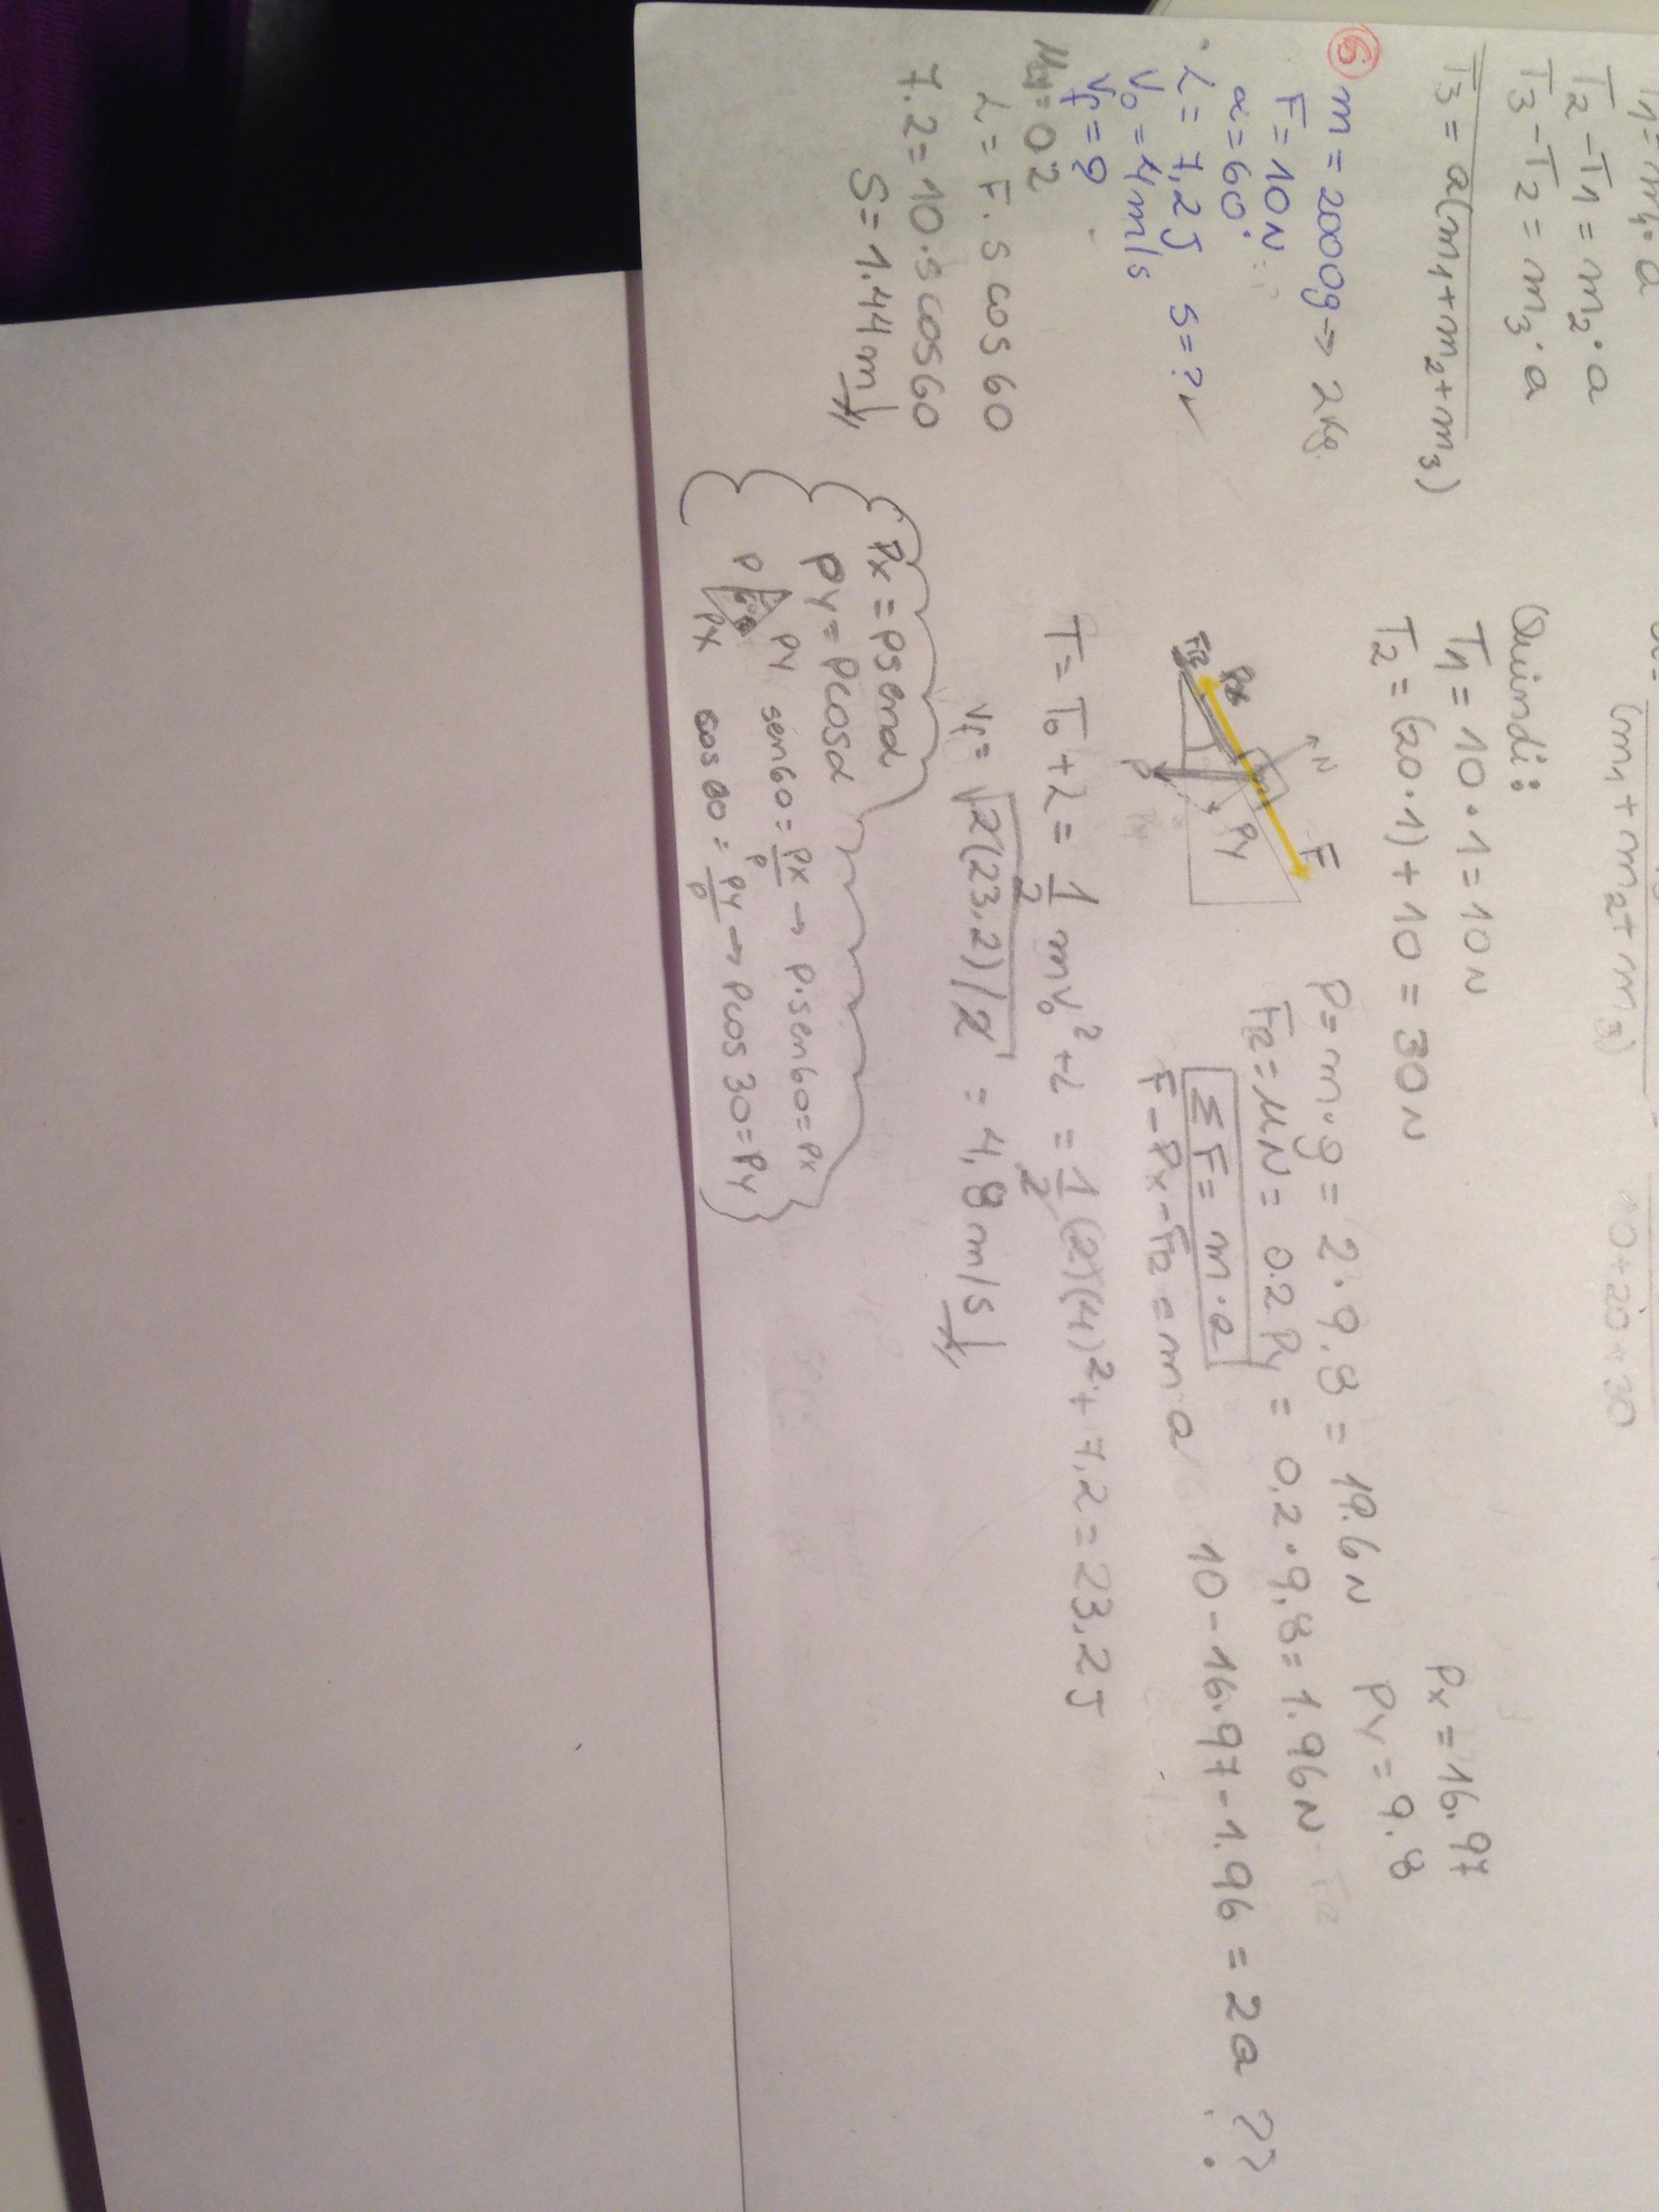 T1 = m1 · a
T2 - T1 = m2 · a
T3 - T2 = m3 · a
T3 = a(m1 + m2 + m3)
(m1 + m2 + m3)
10 + 20 + 30
Quindi:
T1 = 10 · 1 = 10 N
T2 = (20 · 1) + 10 = 30 N
⑥ m = 2000g → 2 Kg
F = 10 N
α = 60°
L = 7,2 J s = ? ✓
V0 = 4 m/s
Vf = ?
= 0.2
L = F . s cos 60
7.2 = 10 . s cos 60
S = 1.44 m
N
F
m
Px
FR
P
Py
Px = 16.97
Py = 9.8
P = m · g = 2 · 9.8 = 19.6 N
FR = μN = 0.2 Py = 0,2 · 9,8 = 1.96 N
Σ F = m · a
F - Px - FR = m a 10 - 16.97 - 1.96 = 2a ??
T = T0 + L = 1/2 m v0² + L = 1/2 (2)(4)² + 7,2 = 23.2 J
Vf = √2(23,2)/2 = 4,8 m/s
Px = P sen α
Py = P cos α
P Py Px
sen 60 = Px/P → P · sen 60 = Px
cos 60 = Py/P → P cos 30 = Py